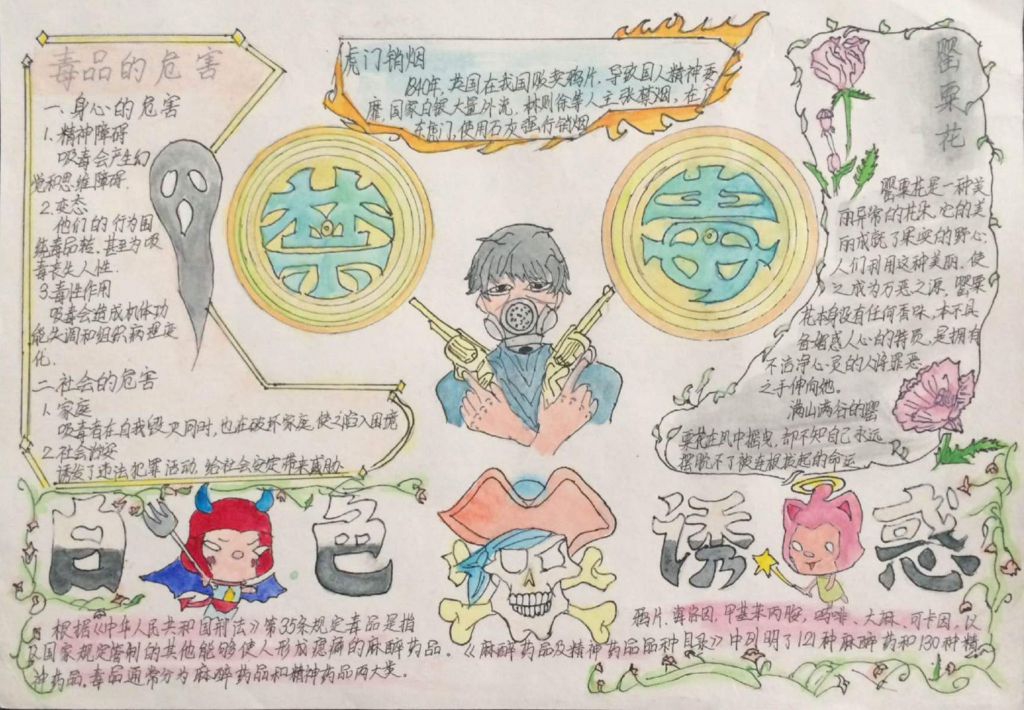 毒品的危害
一、身心的危害
1.精神障碍
吸毒会产生幻
觉和思维障碍.
2.变态
他们的行为围
绕毒品转,甚至为吸
毒丧失人性.
3.毒性作用
吸毒会造成机体功
能失调和组织病理变
化.
二.社会的危害
1.家庭
吸毒者在自我毁灭同时,也在破坏家庭,使之陷入困境
2.社会治安
诱发了违法犯罪活动,给社会安定带来威胁
虎门销烟
1840年,英国在我国贩卖鸦片,导致国人精神萎
靡,国家白银大量外流,林则徐等人主张禁烟,在广
东虎门,使用石灰强行销烟
禁
毒
罂粟花
罂粟花是一种美
丽异常的花朵,它的美
丽成就了果实的野心.
人们利用这种美丽,使
之成为万恶之源.罂粟
花本身没有任何香味,本不具
备蛊惑人心的特质,是拥有
不洁净心灵的人将罪恶
之手伸向他.
满山两谷的罂
粟花在风中摇曳,却不知自己永远
摆脱不了被连根拔起的命运
白色
诱惑
根据《中华人民共和国刑法》第35条规定毒品是指
鸦片、海洛因,甲基苯丙胺,吗啡、大麻、可卡因,以
及国家规定管制的其他能够使人形成瘾癖的麻醉药品.《麻醉药品及精神药品品种目录》中列明了121种麻醉药和130种精
神药品.毒品通常分为麻醉药品和精神药品两大类.